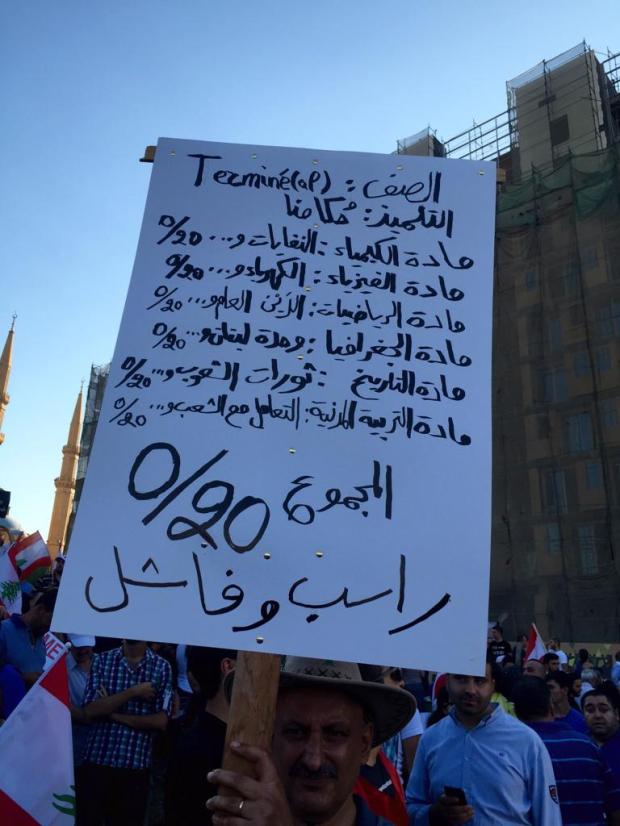 الصف: Terminé(ap)
التلميذ: حُكامنا
مادة الكيمياء: النفايات و... 0/20
مادة الفيزياء: الكهرباء و... 0/20
مادة الرياضيات: الدَين العام و... 0/20
مادة الجغرافيا: وحدة لبنان و... 0/20
مادة التاريخ: ثورات الشعوب و... 0/20
مادة التربية المدنية: التعامل مع الشعب و... 0/20
المجموع 0/20
راسب وفاشل